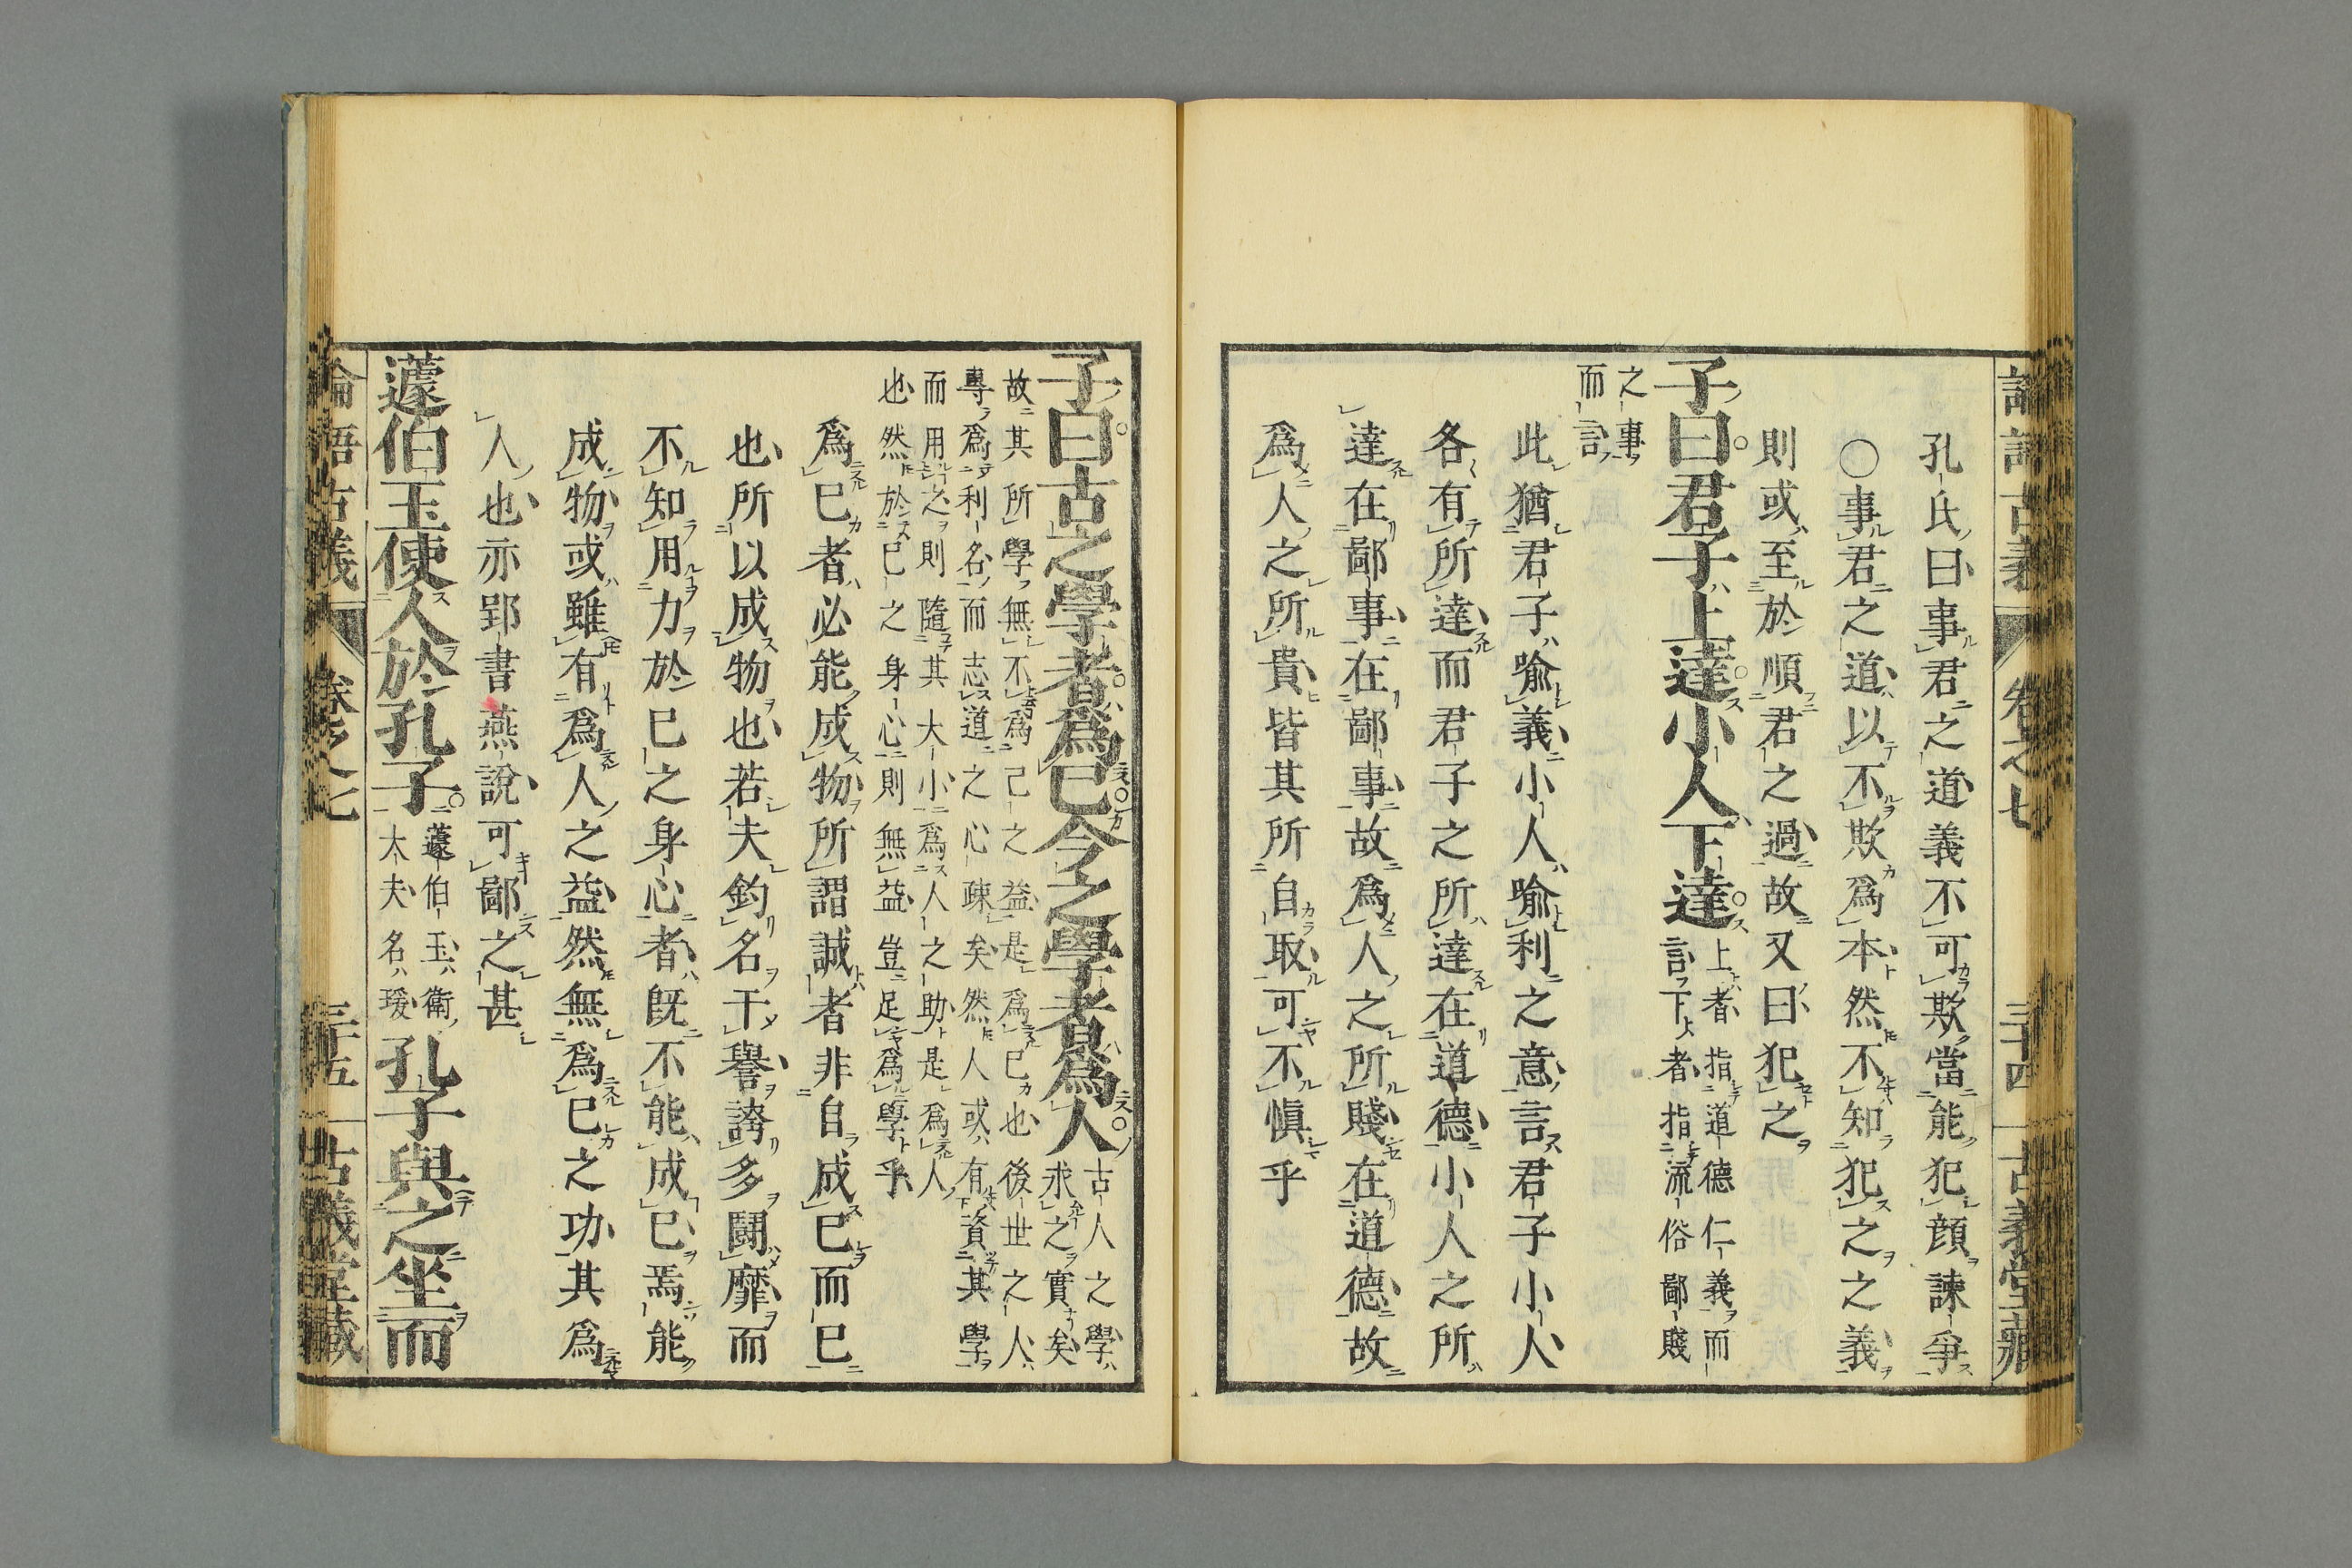 孔氏曰事君之道義不可欺當能犯顔諫爭
○事君之道以不欺爲本然不知犯之之義
則或至於順君之過故又曰犯之
子曰君子上達小人下達
上者指道德仁義而
言下者指流俗鄙賤
之事
而言
此猶君子喩義小人喩利之意言君子小人
各有所達而君子之所達在道德小人之所
達在鄙事在鄙事故爲人之所賤在道德故
爲人之所貴皆其所自取可不愼乎
子曰古之學者爲己今之學者爲人
古人之學
求之實矣
故其所學無不爲己之益是爲己也後世之人
專爲利名而志道之心疎矣然人或有資其學
而用之則隨其大小爲人之助是爲人
也然於己之身心則無益豈足爲學乎
爲己者必能成物所謂誠者非自成己而已
也所以成物也若夫釣名干譽誇多鬪靡而
不知用力於己之身心者既不能成己焉能
成物或雖有爲人之益然無爲己之功其爲
人也亦郢書燕說可鄙之甚
蘧伯玉使人於孔子
蘧伯玉衛
大夫名瑗
孔子與之坐而
論語古義
卷之七
三十五
古義堂藏